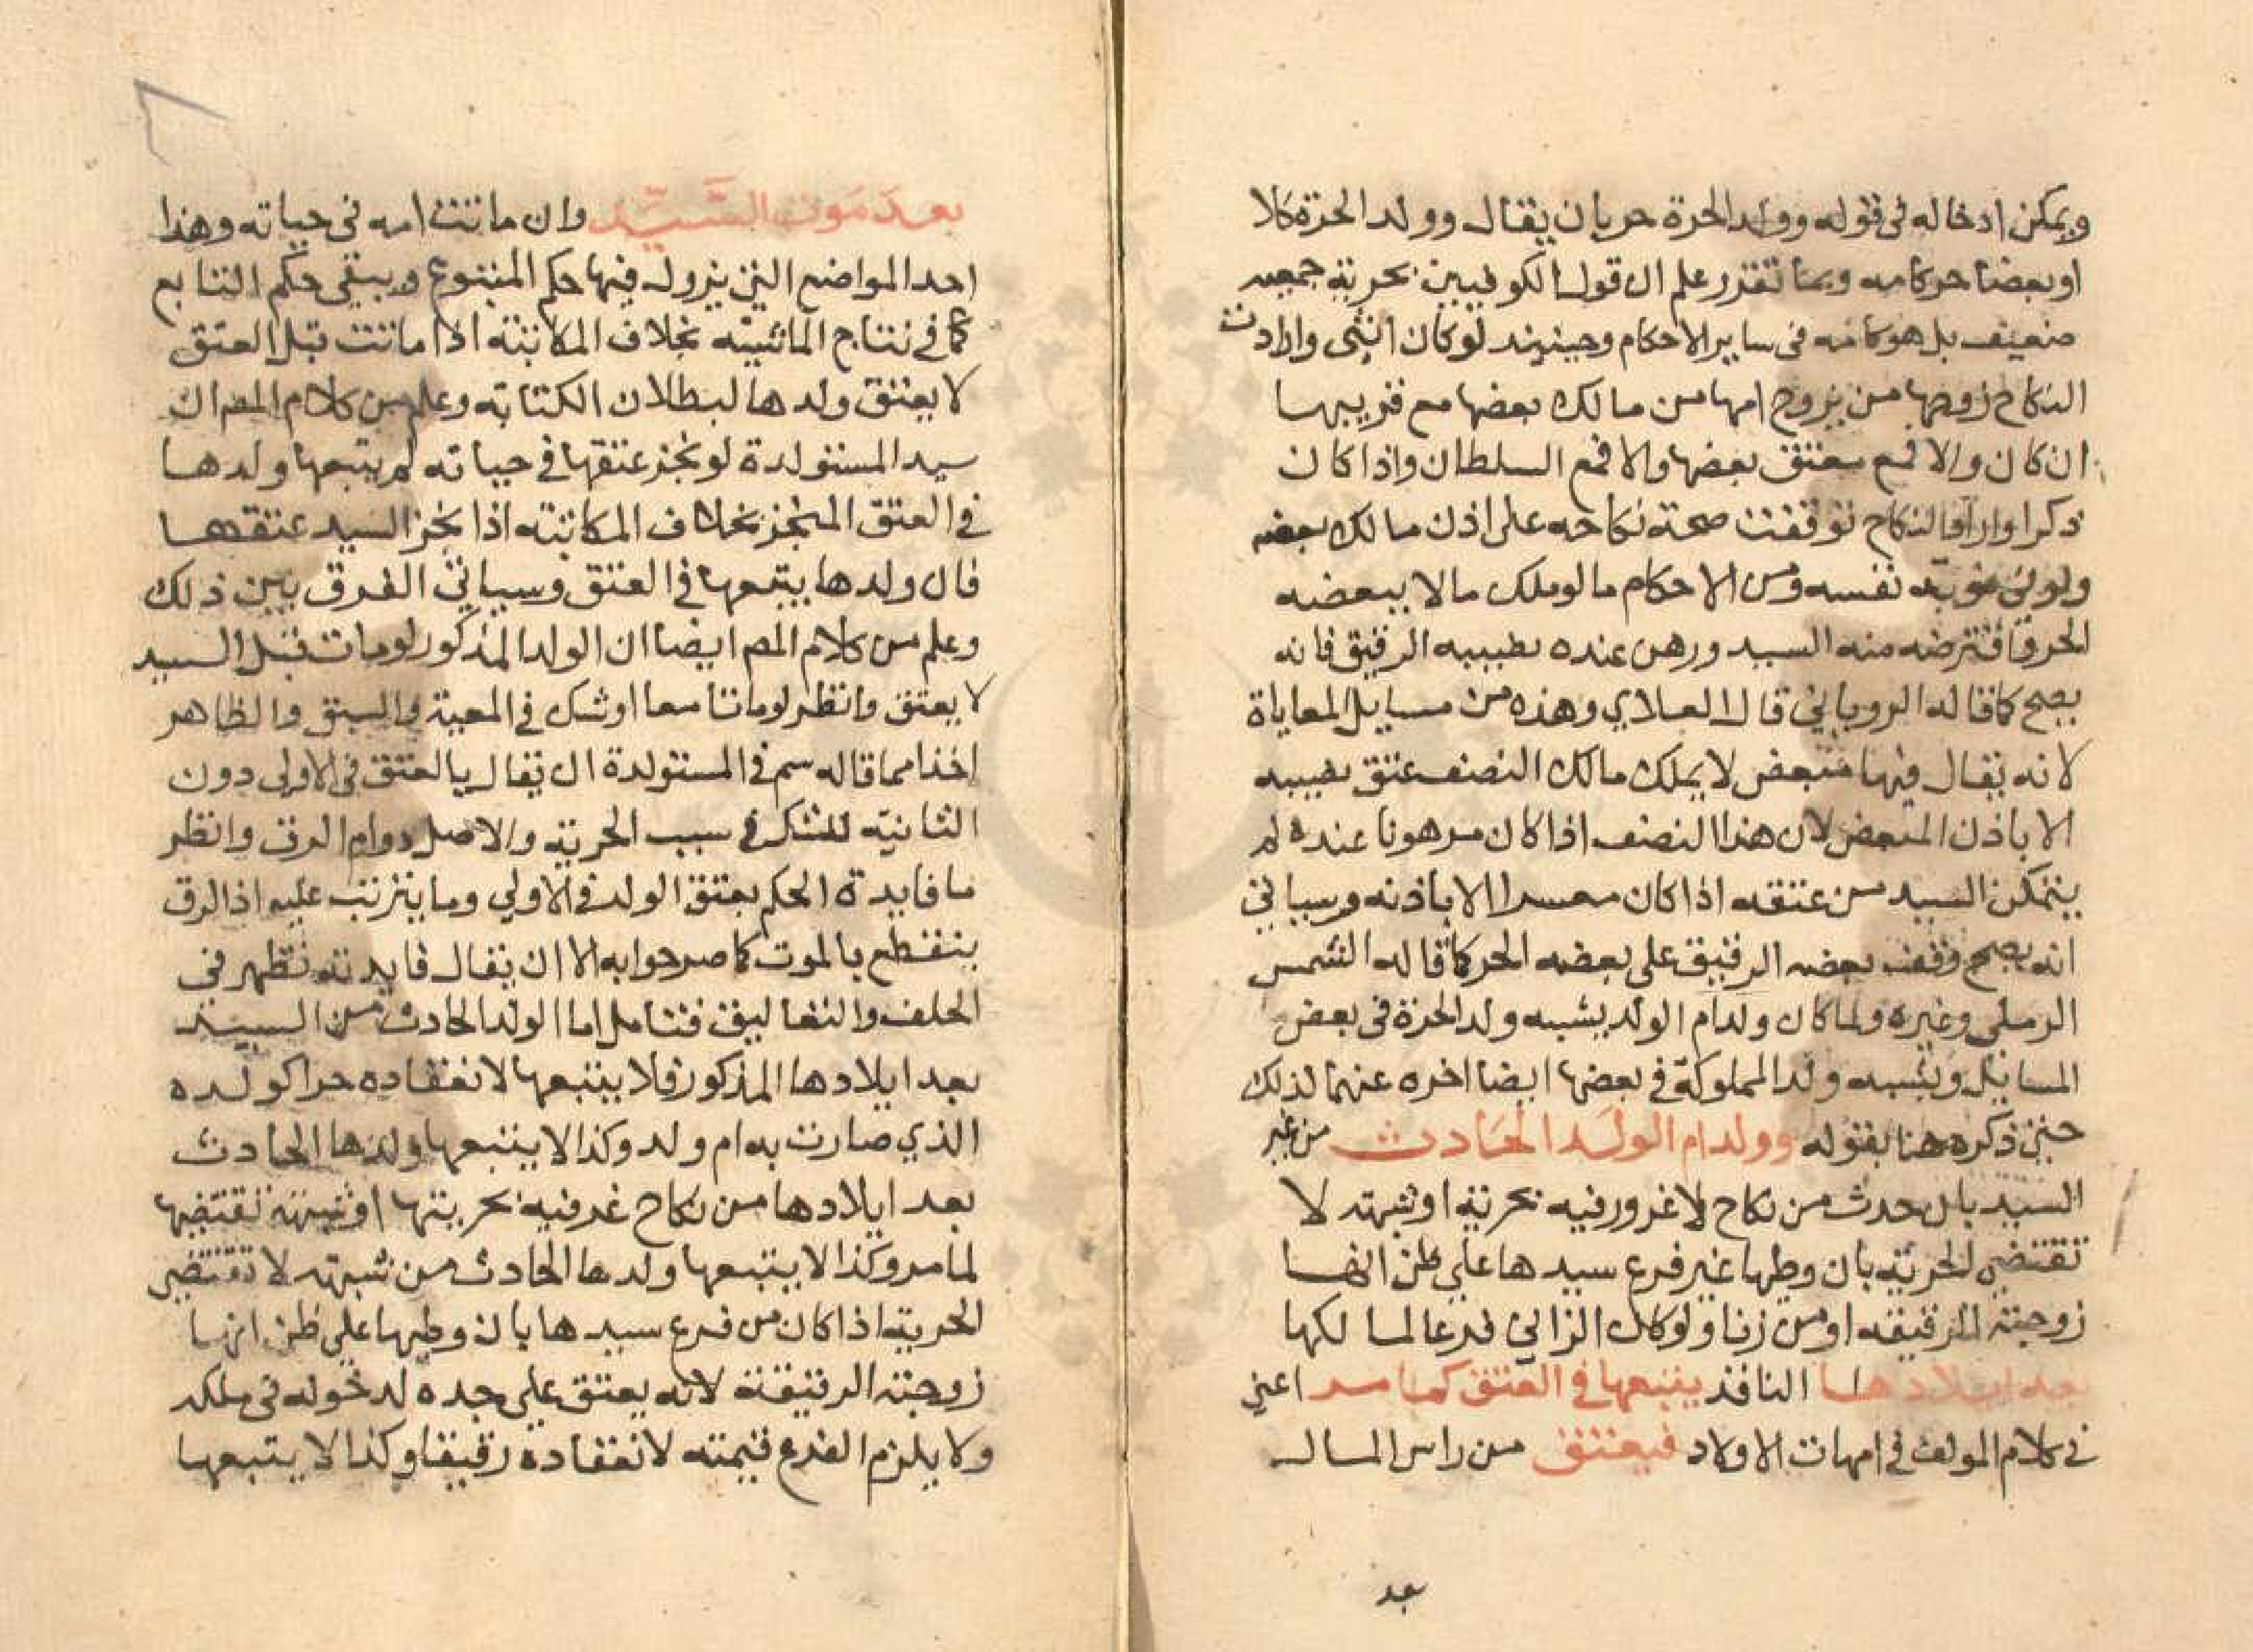 ويمكن ادخاله في قوله وولد الحرة حر بان يقال وولد الحرة كلا
او بعضا حر كامه وبما تقرر علم ان قول الكوفيين بحرية جميعه
ضعيف بل هو كامه في ساير الاحكام وحينيذ لو كان انثى وارادت
النكاح زوجها من يزوج امها من مالك بعضها مع قريبها
ان كان والا فمع معتق بعضها والا فمع السلطان واذا كان
ذكرا واراد النكاح توقفت صحة نكاحه على اذن مالك بعضه
ولو في نوبة نفسه ومن الاحكام ما لو ملك مالا ببعضه
الحر فاقترضه منه السيد ورهن عنده نصيبه الرقيق فانه
يصح كما قاله الروياني قال العلاي وهذه من مسايل المعاياة
لانه يقال فيها مبعض لا يملك مالك النصف عتق نصيبه
الا باذن المبعض لان هذا النصف اذا كان مرهونا عنده لم
يتمكن السيد من عتقه اذا كان معسرا الا باذنه وسياتي
انه يصح وقف بعضه الرقيق على بعضه الحر كما قاله الشمس
الرملي وغيره ولما كان ولد ام الولد يشبه ولد الحرة في بعض
المسايل ويشبه ولد المملوكة في بعضها ايضا اخره عنهما لذلك
حتى ذكره هنا بقوله وولد ام الولد الحادث من غير
السيد بان حدث من نكاح لا غرور فيه بحرية او شبهة لا
تقتضي الحرية بان وطيها غير فرع سيدها على ظن انها
زوجته الرقيقة او من زنا ولو كان الزاني فرعا لمالكها
بعد ايلادها النافذ يتبعها في العتق كما مر اعني
في كلام المولف في امهات الاولاد فيعتق من راس المال
بعد
بعد موت السيد وان ماتت امه في حياته وهذا
احد المواضع التي يزول فيها حكم المتبوع ويبقى حكم التابع
كما في نتاج الماشية بخلاف المكاتبة اذا ماتت قبل العتق
لا يعتق ولدها لبطلان الكتابة وعلم من كلام المص ان
سيد المستولدة لو نجز عتقها في حياته لم يتبعها ولدها
في العتق المنجز بخلاف المكاتبة اذا نجز السيد عتقها
فان ولدها يتبعها في العتق وسياتي الفرق بين ذلك
وعلم من كلام المص ايضا ان الولد المذكور لو مات قبل السيد
لا يعتق وانظر لو ماتا معا او شك في المعية والسبق والظاهر
اخذا مما قاله سم في المستولدة ان يقال بالعتق في الاولى دون
الثانية للشك في سبب الحرية والاصل دوام الرق وانظر
ما فايدة الحكم بعتق الولد في الاولي وما يترتب عليه اذ الرق
ينقطع بالموت كما صرحوا به الا ان يقال فايدته تظهر في
الحلف والتعاليق فتامل اما الولد الحادث من السيد
بعد ايلادها المذكور فلا يتبعها لانعقاده حرا كولده
الذي صارت به ام ولد وكذا لا يتبعها ولدها الحادث
بعد ايلادها من نكاح غر فيه بحريتها او شبهة تقتضيها
لما مر وكذا لا يتبعها ولدها الحادث من شبهة لا تقتضي
الحرية اذا كان من فرع سيدها بان وطيها على ظن انها
زوجته الرقيقة لانه يعتق على جده لدخوله في ملكه
ولا يلزم الفرع قيمته لانعقاده رقيقا وكذا لا يتبعها